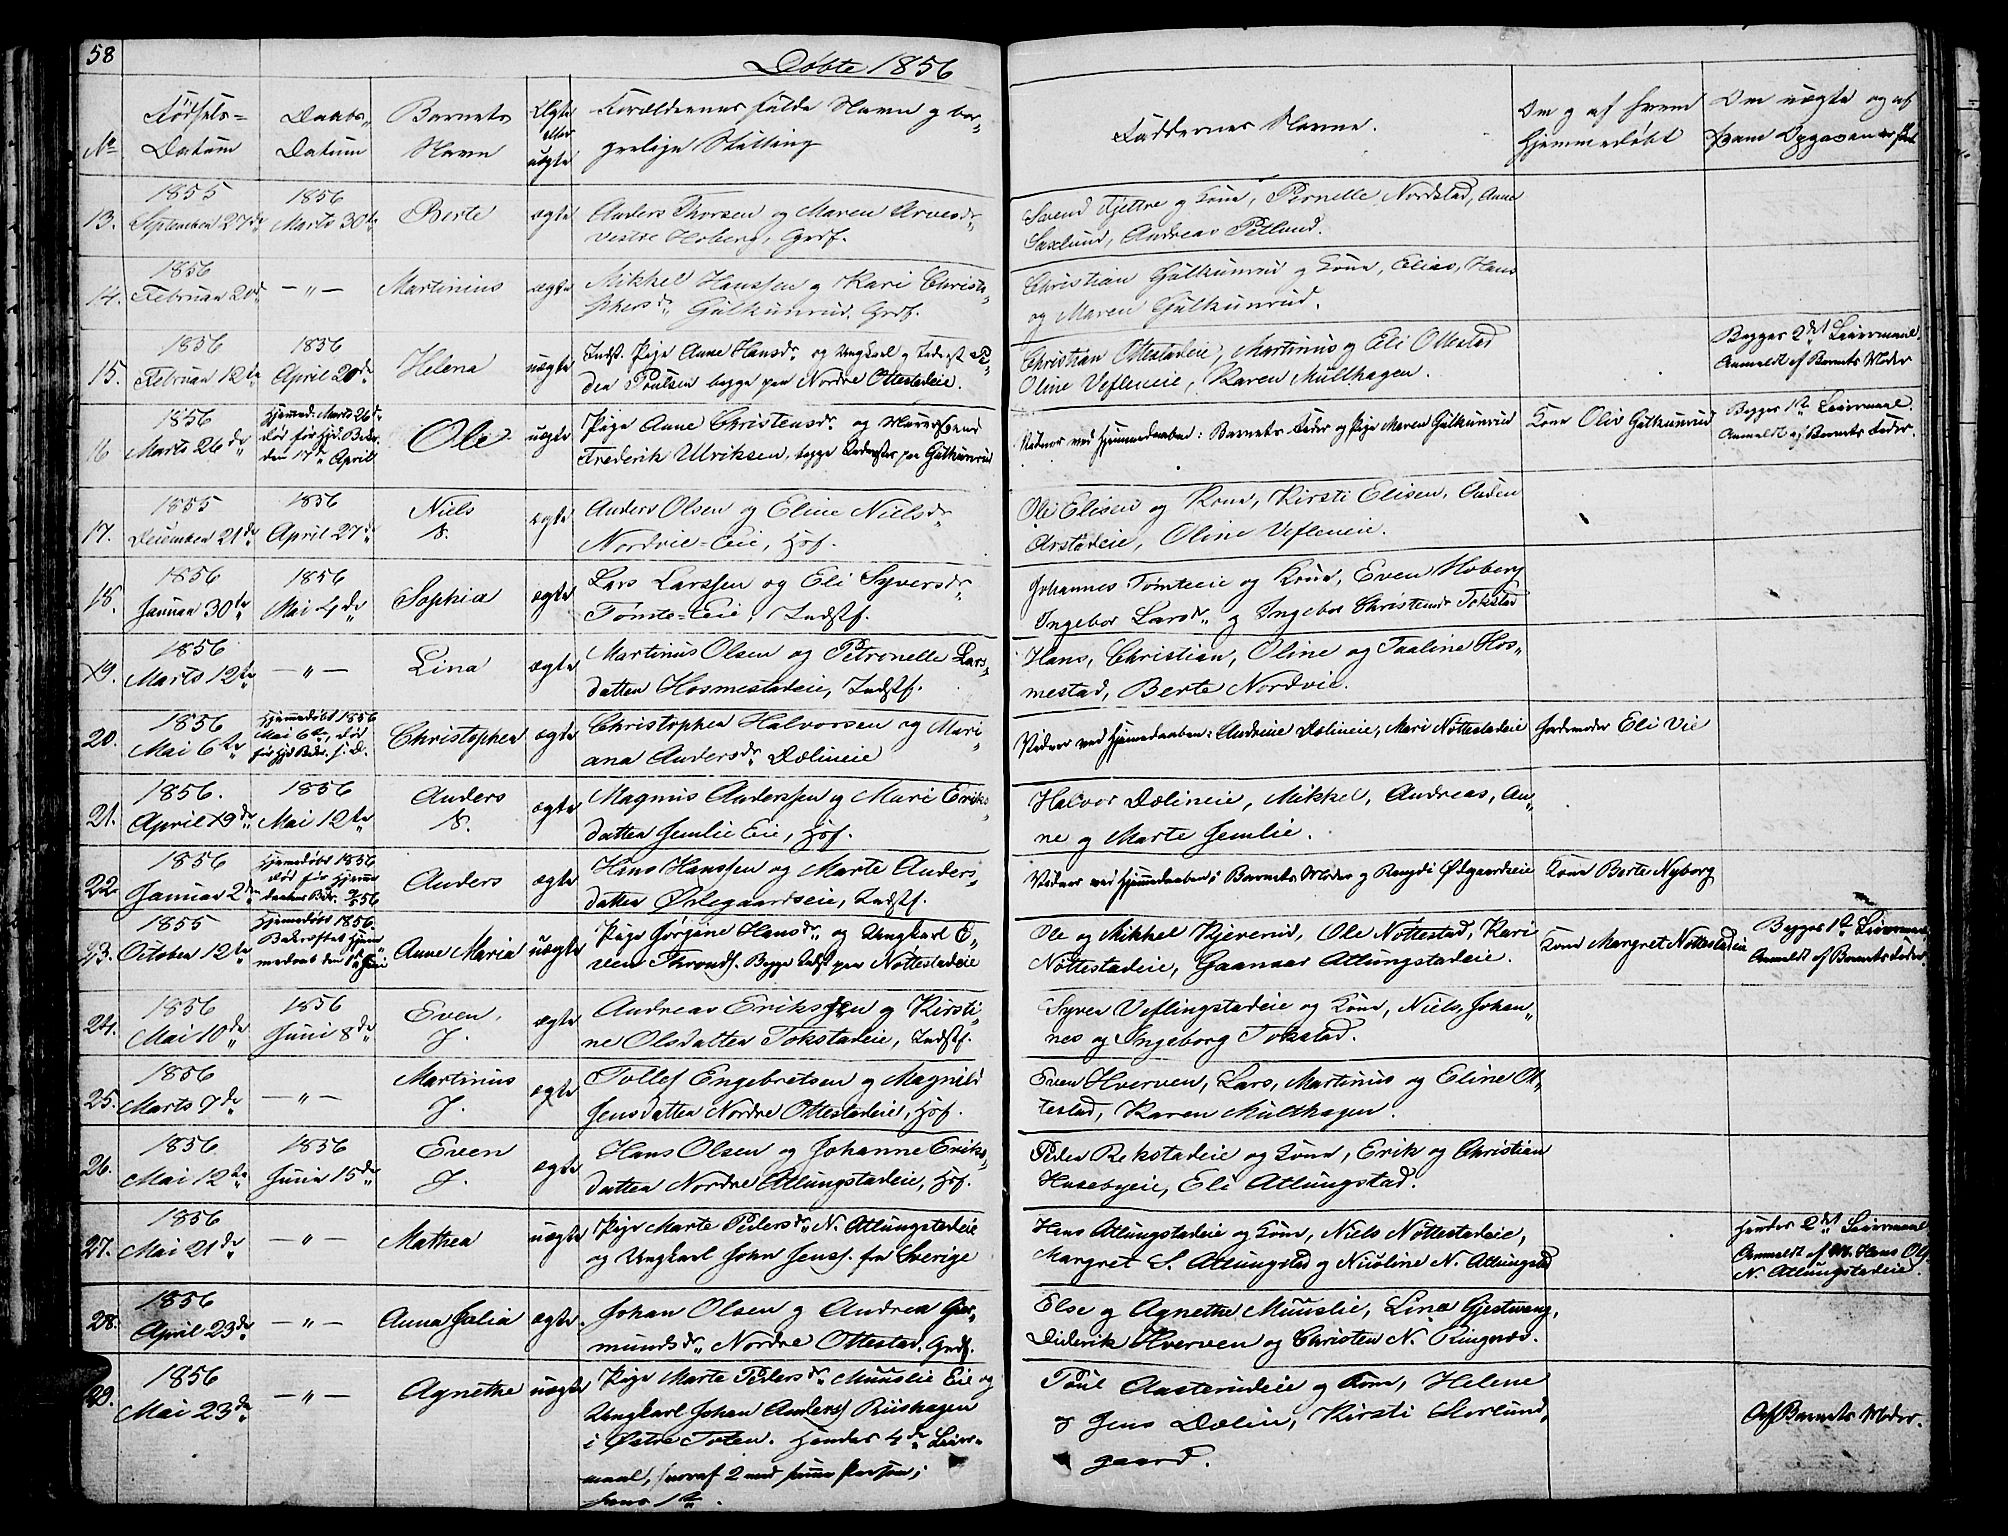 58
Døbte 1856
No
Fødsels-
Datum
Daabs-
Datum
Barnets
Navn
Ægte
eller
uægte
Forældrenes fulde Navn og bor-
gerlige Stilling
Faddernes Navne.
Om og af hvem
Hjemmedøbt
Om uægte og af
hvem Opgaven er skeet
13.
1855
September 27de
1856
Marts 30te
Berte
ægte
Anders Thorsen og Maren Arvesdr
Vestre Hoberg, Grdf.
Svend Kjettre og Kone, Pernelle Nordstad, Anne
Saxlund, Andreas Petlund.
14.
1856
Februar 20de
— " —
Martinius
ægte
Mikkel Hanssen og Kari Christo-
phersdr Gulkunrud, Grdf.
Christian Gulkunrud og Kone, Elias, Hans
og Maren Gulkunrud.
15.
1856
Februar 12te
1856
April 20de
Helena
uægte
Indst. Pige Anne Hansdr og Ungkarl og Inderst Pe-
der Poulsen begge paa Nordre Ottestadeie.
Christian Ottestadeie, Martinus og Eli Ottestad
Oline Vefleneie, Karen Multhagen.
Begges 2det Leiermaal.
Anmeldt af Barnets Moder
16
1856
Marts 26de
Hjemmed. Marts 26de
død før Hjd. Bekr.
den 17de April
Ole
uægte
Pige Anne Christensdr og Murersvend
Frederik Ulriksen, begge Inderster paa Gulkunrud
Vidner ved Hjemmedaaben: Barnets Fader og Pige Maren Gulkunrud
Kone Oliv Gulkunrud
Begges 1te Leiermaal.
Anmeldt af Barnets Fader.
17.
1855
December 21de
1856
April 27de
Niels
N.
ægte
Anders Olsen og Eline Nielsdr
Nordvie-Eie, Hsf.
Ole Elisen og Kone, Kirsti Elisen, Anders
Arstadeie, Oline Vefleneie.
18.
1856
Januar 30te
1856
Mai 4de
Sophia
ægte
Lars Larssen og Eli Syversdr
Tømte-Eie, Indstf.
Johannes Tomteeie og Kone, Even Hoberg
Ingebor Larsdr og Ingebor Christensdr Tokstad
19.
1856
Marts 12te
— " —
Lina
ægte
Martinus Olsen og Petronelle Lars-
datter Hosmestadeie, Indstf.
Hans, Christian, Oline og Paaline Hos-
mestad, Berte Nordvie.
20.
1856
Mai 6te
Hjemmedøbt 1856
Mai 6te, død
før Hjd Bekr. s. D.
Christopher
ægte
Christopher Halvorsen og Mari-
ana Andersdr Dælineie
Vidner ved Hjemmedaaben: Andrine Dælineie, Mari Nøttestadeie
Jordemoder Eli Vie
21.
1856.
April 19de
1856
Mai 12te
Anders
N.
ægte
Magnus Anderssen og Mari Eriks-
datter Jemlie Eie, Hsf.
Halvor Dælineie, Mikkel, Andreas, An-
ne og Marte Jemlie.
22
1856
Januar 2den
Hjemmedøbt 1856
død før Hjemme
daabens Bekr.
Anders
ægte
Hans Hanssen og Marte Anders-
datter Ødegaardseie, Indstf.
Vidner ved Hjemmedaaben: Barnets Moder og Rangdi Ødgaardseie
Kone Berte Nyborg
23.
1855
October 12te
Hjemmedøbt 1856.
Bekræftet Hjem-
medaab den 1ste Juni
Anne Maria
uægte
Pige Jørgine Hansdr og Ungkarl E-
ven Throndsf. Begge Indst paa Nøttestadeie
Ole og Mikkel Kjeverud, Ole Nøttestad, Kari
Nøttestadeie, Gaanaar Atlungstadeie.
Kone Margret Nøttestadeie
Begges 1te Leiermaal
Anmeldt af Barnets Fader.
24.
1856
Mai 10de
1856
Juni 8de
Even,
J.
ægte
Andreas Erikssen og Kirsti-
ne Olsdatter Tokstadeie, Indstf.
Syver Veflingstadeie og Kone, Niels, Johan-
nes og Ingeborg Tokstad.
25.
1856
Marts 7de
— " —
Martinus
J.
ægte
Tollef Engebretsen og Magnild
Jensdatter Nordre Ottestadeie, Hsf.
Even Hverven, Lars, Martinus og Eline Ot-
testad, Karen Multhagen.
26.
1856
Mai 12te
1856
Junie 15de
Even
J.
ægte
Hans Olsen og Johanne Eriks-
datter Nordre Atlungstadeie, Hsf.
Peder Rekstadeie og Kone, Erik og Christian
Husebyeie, Eli Atlungstad.
27.
1856
Mai 21de
— " —
Mathea
uægte
Pige Marte Pedersdr N. Atlungstadeie
og Ungkarl John Jensf. fra Sverige
Hans Atlungstadeie og Kone, Niels Nøttestadeie,
Margret S. Atlungstad og Nicoline N. Atlungstad
Hendes 2det Leiermaal
Anmeldt af M. Hans Ols
N. Atlungstadeie.
28.
1856
April 23de
— " —
Anna Julia
ægte.
Johan Olsen og Andrea Gor-
mundsdr Nordre Ottestad, Grdf.
Else og Agnethe Muuslie, Lina Gjestvang,
Diderik Hverven og Christen N. Ringnæs.
29.
1856
Mai 23de
— " —
Agnethe
uægte
Pige Marte Pedersdr Muuslie Eie og
Ungkarl Johan Andersf Riishagen
i Østre Toten. Hendes 4de Leier-
maal, hvoraf 2 med samme Person;
hans 1te.
Poul Aasterudeie og Kone, Helene
og Jens Dælin, Kirsti Storlund-
gaard.
Af Barnets Moder.